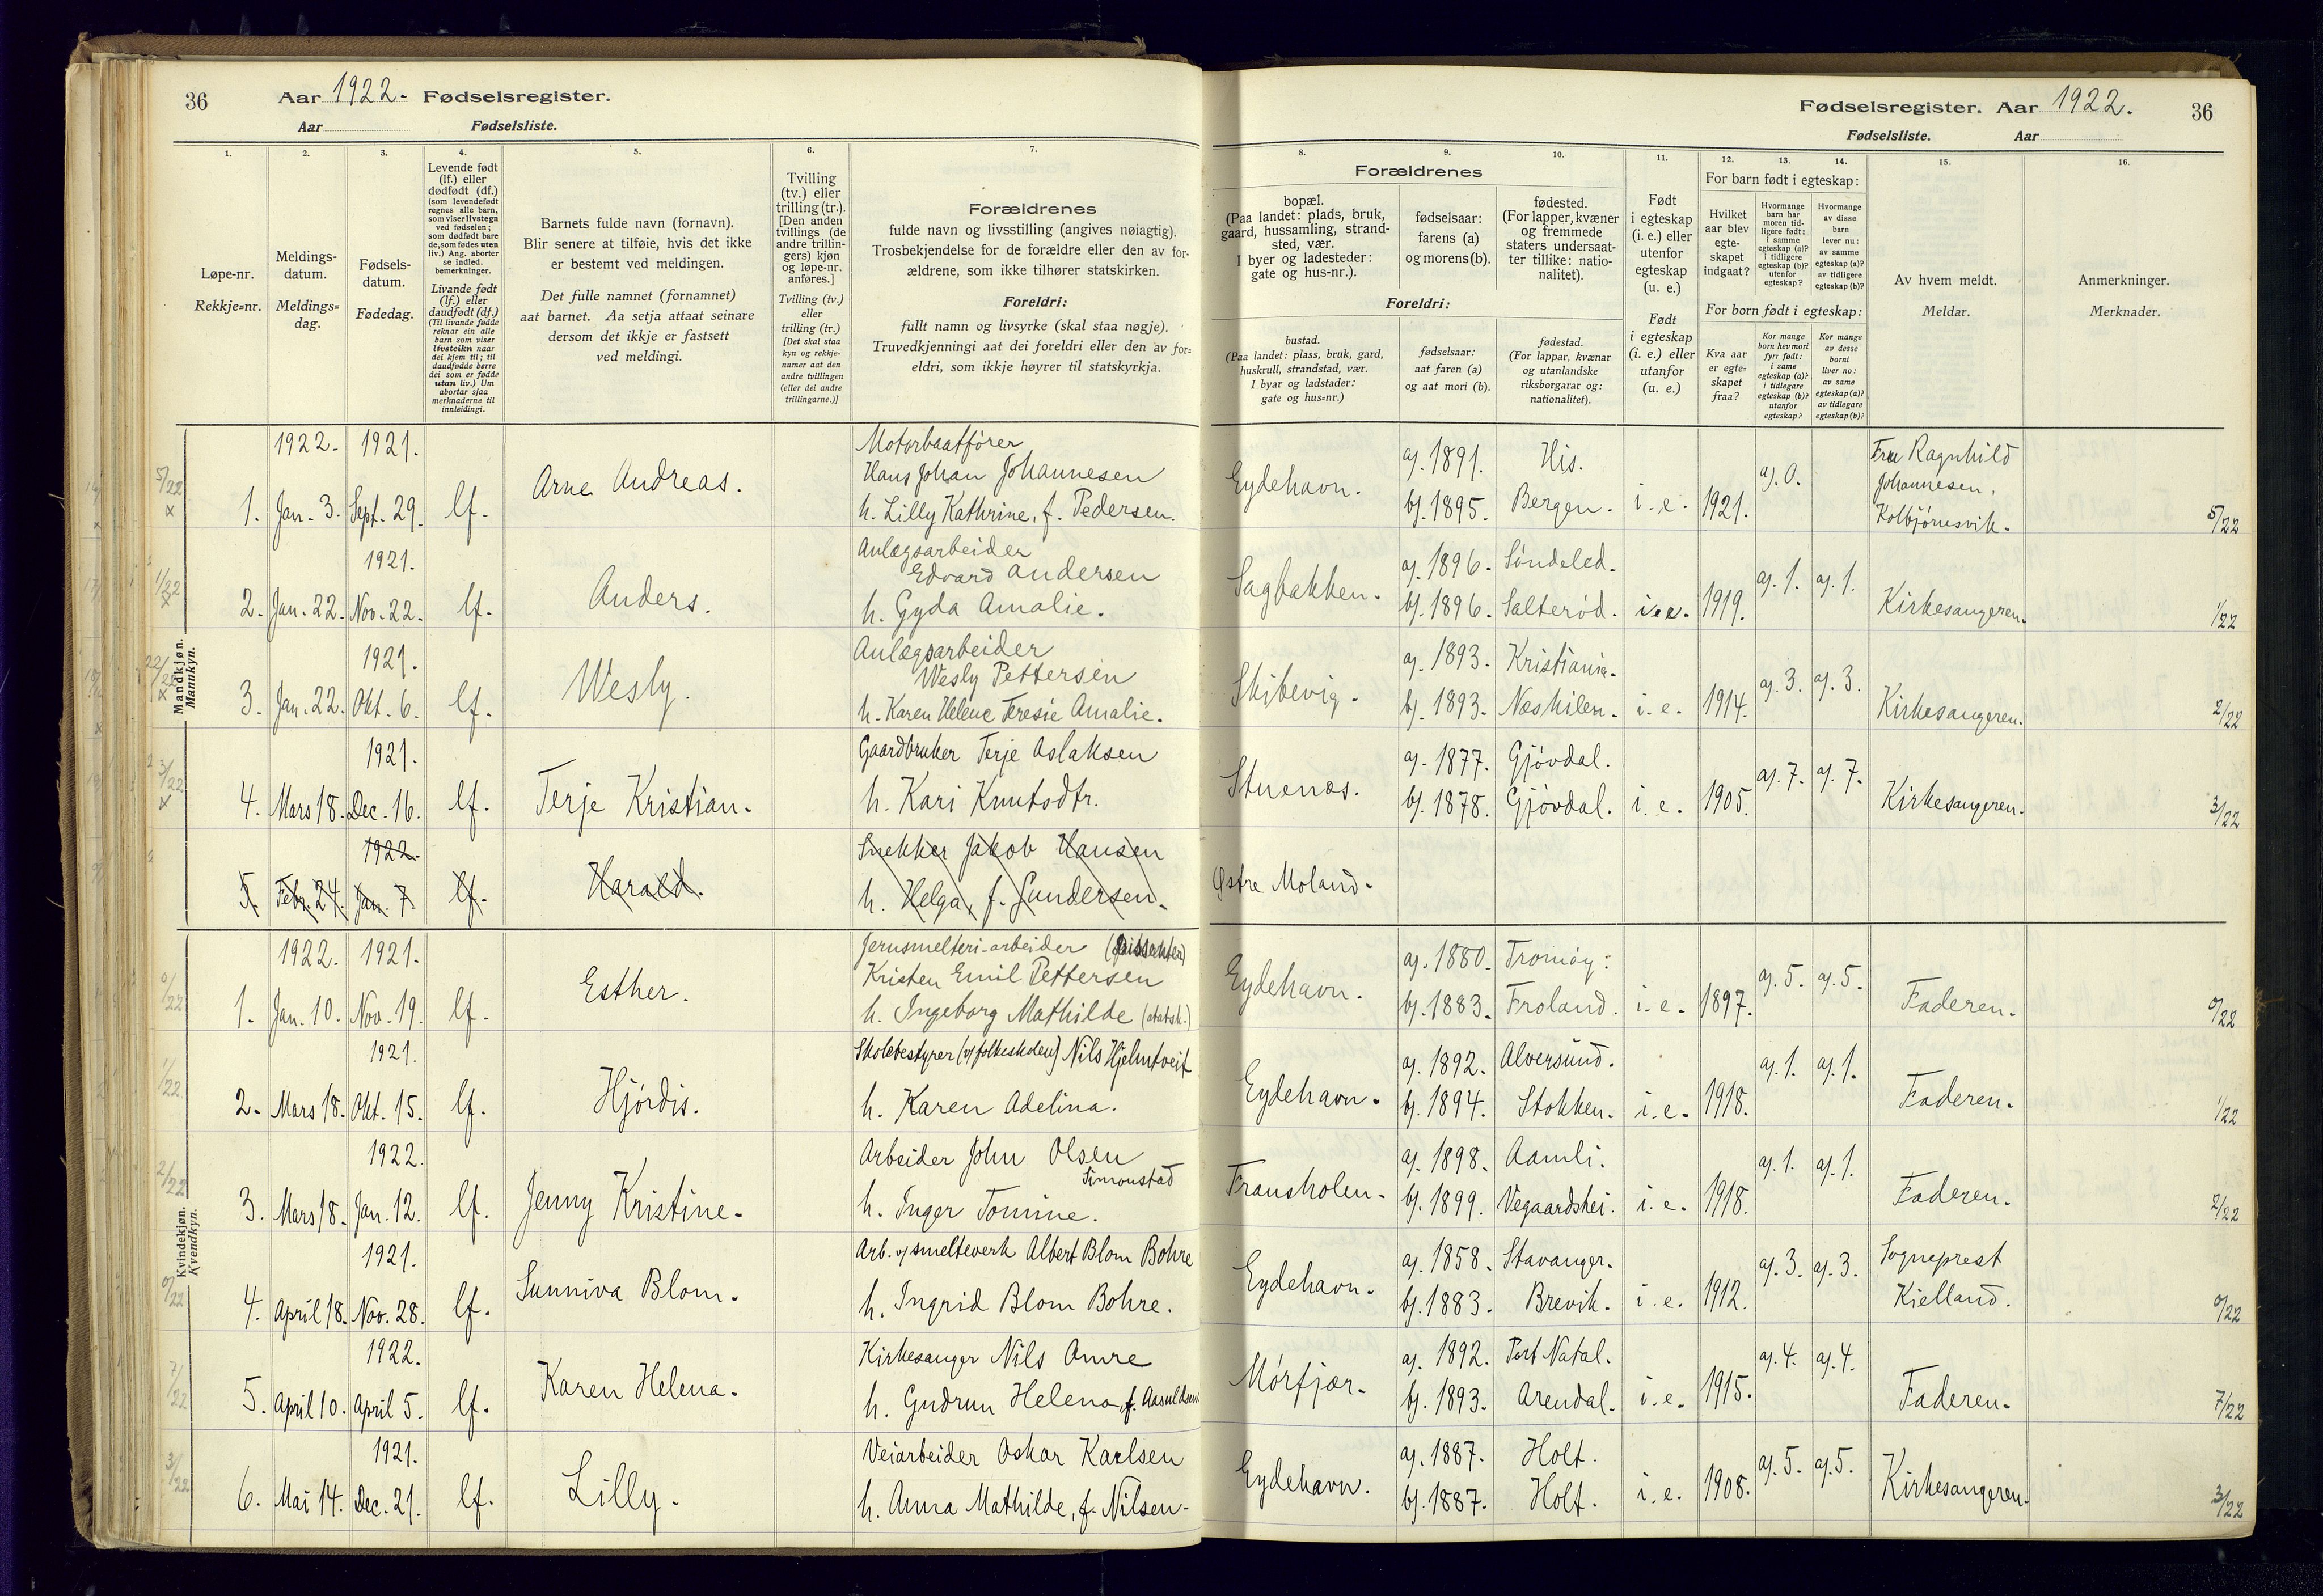 36 Aar 1922. Fødselsregister.
Aar Fødselsliste.
Fødselsregister. Aar 1922. 36
Fødselsliste. Aar
1. 2. 3. 4. 5. 6. 7.
Løpe-nr.
Rekkje=nr.
Meldings-
datum.
Meldings=
dag.
Fødsels-
datum.
Fødedag.
Levende født
(lf.) eller
dødfødt (df.)
(som levendefødt
regnes alle barn,
som viser livstegn
ved fødselen;
som dødfødt bare
de, som fødes uten
liv.) Ang. aborter
se indled.
bemerkninger.
Livande født
(lf.) eller
daudfødt (df.)
(Til livande fødde
reknar ein alle
barn som viser
livsteikn naar
dei kjem til; til
daudfødde berre
dei som er fødde
utan liv.) Um
abortar sjaa
merknaderne til
innleidingi.
Barnets fulde navn (fornavn).
Blir senere at tilføie, hvis det ikke
er bestemt ved meldingen.
Det fulle namnet (fornamnet)
aat barnet. Aa setja attaat seinare
dersom det ikkje er fastsett
ved meldingi.
Tvilling
(tv.) eller
trilling (tr.).
[Den anden
tvillings (de
andre trillin-
gers) kjøn
og løpe-nr.
anføres.]
Tvilling (tv.)
eller
trilling (tr.)
[Det skal staa
kyn og rekkje-
numer aat den
andre tvillingen
(eller dei andre
trillingarne.)]
Forældrenes
fulde navn og livsstilling (angives nøiagtig).
Trosbekjendelse for de forældre eller den av for-
ældrene, som ikke tilhører statskirken.
Foreldri:
fullt namn og livsyrke (skal staa nøgje).
Truvedkjenningi aat dei foreldri eller den av for=
eldri, som ikkje høyrer til statskyrkja.
8. 9. 10. 11. 12. 13. 14. 15. 16.
Forældrenes
bopæl.
(Paa landet: plads, bruk,
gaard, hussamling, strand-
sted, vær.
I byer og ladesteder:
gate og hus-nr.).
fødselsaar:
farens (a)
og morens (b).
fødested.
(For lapper, kvæner
og fremmede
staters undersaat-
ter tillike: natio-
nalitet).
Foreldri:
bustad.
(Paa landet: plass, bruk, gard,
huskrull, strandstad, vær.
I byar og ladstader:
gate og hus=nr.)
fødselsaar:
aat faren (a)
og aat mori (b).
fødestad.
(For lappar, kvænar
og utanlandske
riksborgarar og:
nationalitet).
Født
i egteskap
(i. e.) eller
utenfor
egteskap
(u. e.)
Født
i egteskap
(i. e.) eller
utanfor
(u. e.)
For barn født i egteskap:
Hvilket
aar blev
egte-
skapet
indgaat?
Hvormange
barn har
moren tid-
ligere født:
i samme
egteskap (a)?
i tidligere
egteskap (b)?
utenfor
egteskap?
Hvormange
av disse
barn
lever nu:
av samme
egteskap (a)?
av tidligere
egteskap (b)?
For born født i egteskap:
Kva aar
er egte=
skapet
fraa?
Kor mange
born hev mori
fyrr født:
i same
egteskap (a)?
i tidlegare
egteskap (b)?
utanfor
egteskap?
Kor mange
av desse
borni
liver no:
av same
egteskap (a)?
av tidlegare
egteskap (b)?
Av hvem meldt.
Meldar.
Anmerkninger.
Merknader.
Mandkjøn.
Mannkyn.
1922. 1921. Motorbaatfører
5/22 Arne Andreas. Hans Johan Johannesen
1. Jan. 3. Sept. 29. lf. h. Lilly Kathrine, f. Pedersen.
Eydehavn. a). 1891. His. a). 0. Fru Ragnhild
b). 1895. Bergen. i. e. 1921. Johannesen,
Kolbjørnsvik. 5/22
1921. Anlægsarbeider
1/22 Anders. Edvard Andersen
2. Jan. 22. Nov. 22. lf. h. Gyda Amalie.
Sagbakken. a). 1896. Søndeled. a). 1. a). 1.
b). 1896. Salterød. i. e. 1919. Kirkesangeren. 1/22
1921. Anlægsarbeider
Wesly. Wesly Pettersen
3. Jan. 22. Okt. 6. lf. h. Karen Helene Teresie Amalie.
Skibevig. a). 1893. Kristiania. a). 3. a). 3.
b). 1893. Næskilen. i. e. 1914. Kirkesangeren. 2/22
1921. Gaardbruker Terje Aslaksen
3/22
4. Mars 18. Dec. 16. lf. Terje Kristian. h. Kari Knutsdtr.
Stuenæs. a). 1877. Gjøvdal. a). 7. a). 7.
b). 1878. Gjøvdal. i. e. 1905. Kirkesangeren. 3/22
1922. Snekker Jakob Hansen
5. Febr. 24. Jan. 7. lf. Harald. h. Helga, f. Gundersen.
Østre Moland.
Kvindekjøn.
Kvendkyn.
1922. 1921. Jernsmelteri-arbeider (dissenter)
0/22 Esther. Kristen Emil Pettersen
1. Jan. 10. Nov. 19. lf. h. Ingeborg Mathilde (statsk.)
Eydehavn. a). 1880. Tromøy. a). 5. a). 5.
b). 1883. Froland. i. e. 1897. Faderen. 0/22
1921. Skolebestyrer (v/ folkeskolen) Nils Hjelmtveit
1/22
2. Mars 18. Okt. 15. lf. Hjørdis. h. Karen Adelina.
Eydehavn. a). 1892. Alversund. a). 1. a). 1.
b). 1894. Stokken. i. e. 1918. Faderen. 1/22
1922. Arbeider John Olsen
2/22 Simonstad
3. Mars 18. Jan. 12. lf. Jenny Kristine. h. Inger Tomine.
Fransholen. a). 1898. Aamli. a). 1. a). 1.
b). 1899. Vegaardshei. i. e. 1918. Faderen. 2/22
1921. Arb. v/ smelteverk Albert Blom Bohre
0/22 Sunniva Blom.
4. April 18. Nov. 28. lf. h. Ingrid Blom Bohre.
Eydehavn. a). 1858. Stavanger. a). 3. a). 3. Sogneprest
b). 1883. Brevik. i. e. 1912. Kielland. 0/22
1922. Kirkesanger Nils Omre
7/22 Karen Helena.
5. April 10. April 5. lf. h. Gudrun Helena, f. Aasuldsen
Mørfjær. a). 1892. Port Natal. a). 4. a). 4.
b). 1893. Arendal. i. e. 1915. Faderen. 7/22
1921. Veiarbeider Oskar Karlsen
3/22 Lilly.
6. Mai 14. Dec. 21. lf. h. Anna Mathilde, f. Nilsen.
Eydehavn. a). 1887. Holt. a). 5. a). 5.
b). 1887. Holt. i. e. 1908. Kirkesangeren. 3/22